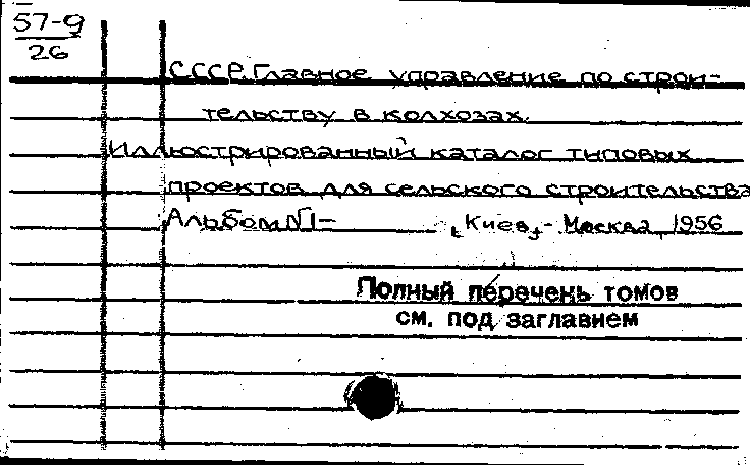 57-9
26
СССР. Главное управление по строи-
тельству в колхозах.
Иллюстрированный каталог типовых
проектов для сельского строительства
Альбом №1- [Киев]- Москва, 1956
Полный перечень томов
см. под заглавием